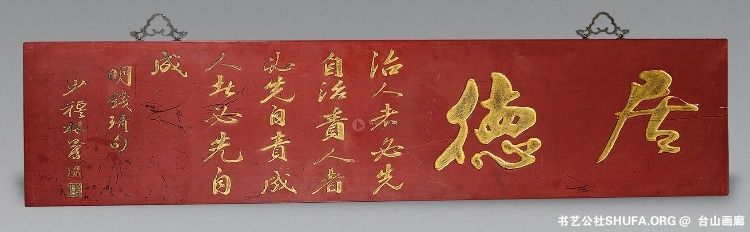 居德
治人者必先
自治責人者
必先自責成
人者必先自
成
明錢琦句
少穆林
书艺公社SHUFA.ORG @ 台山画廊